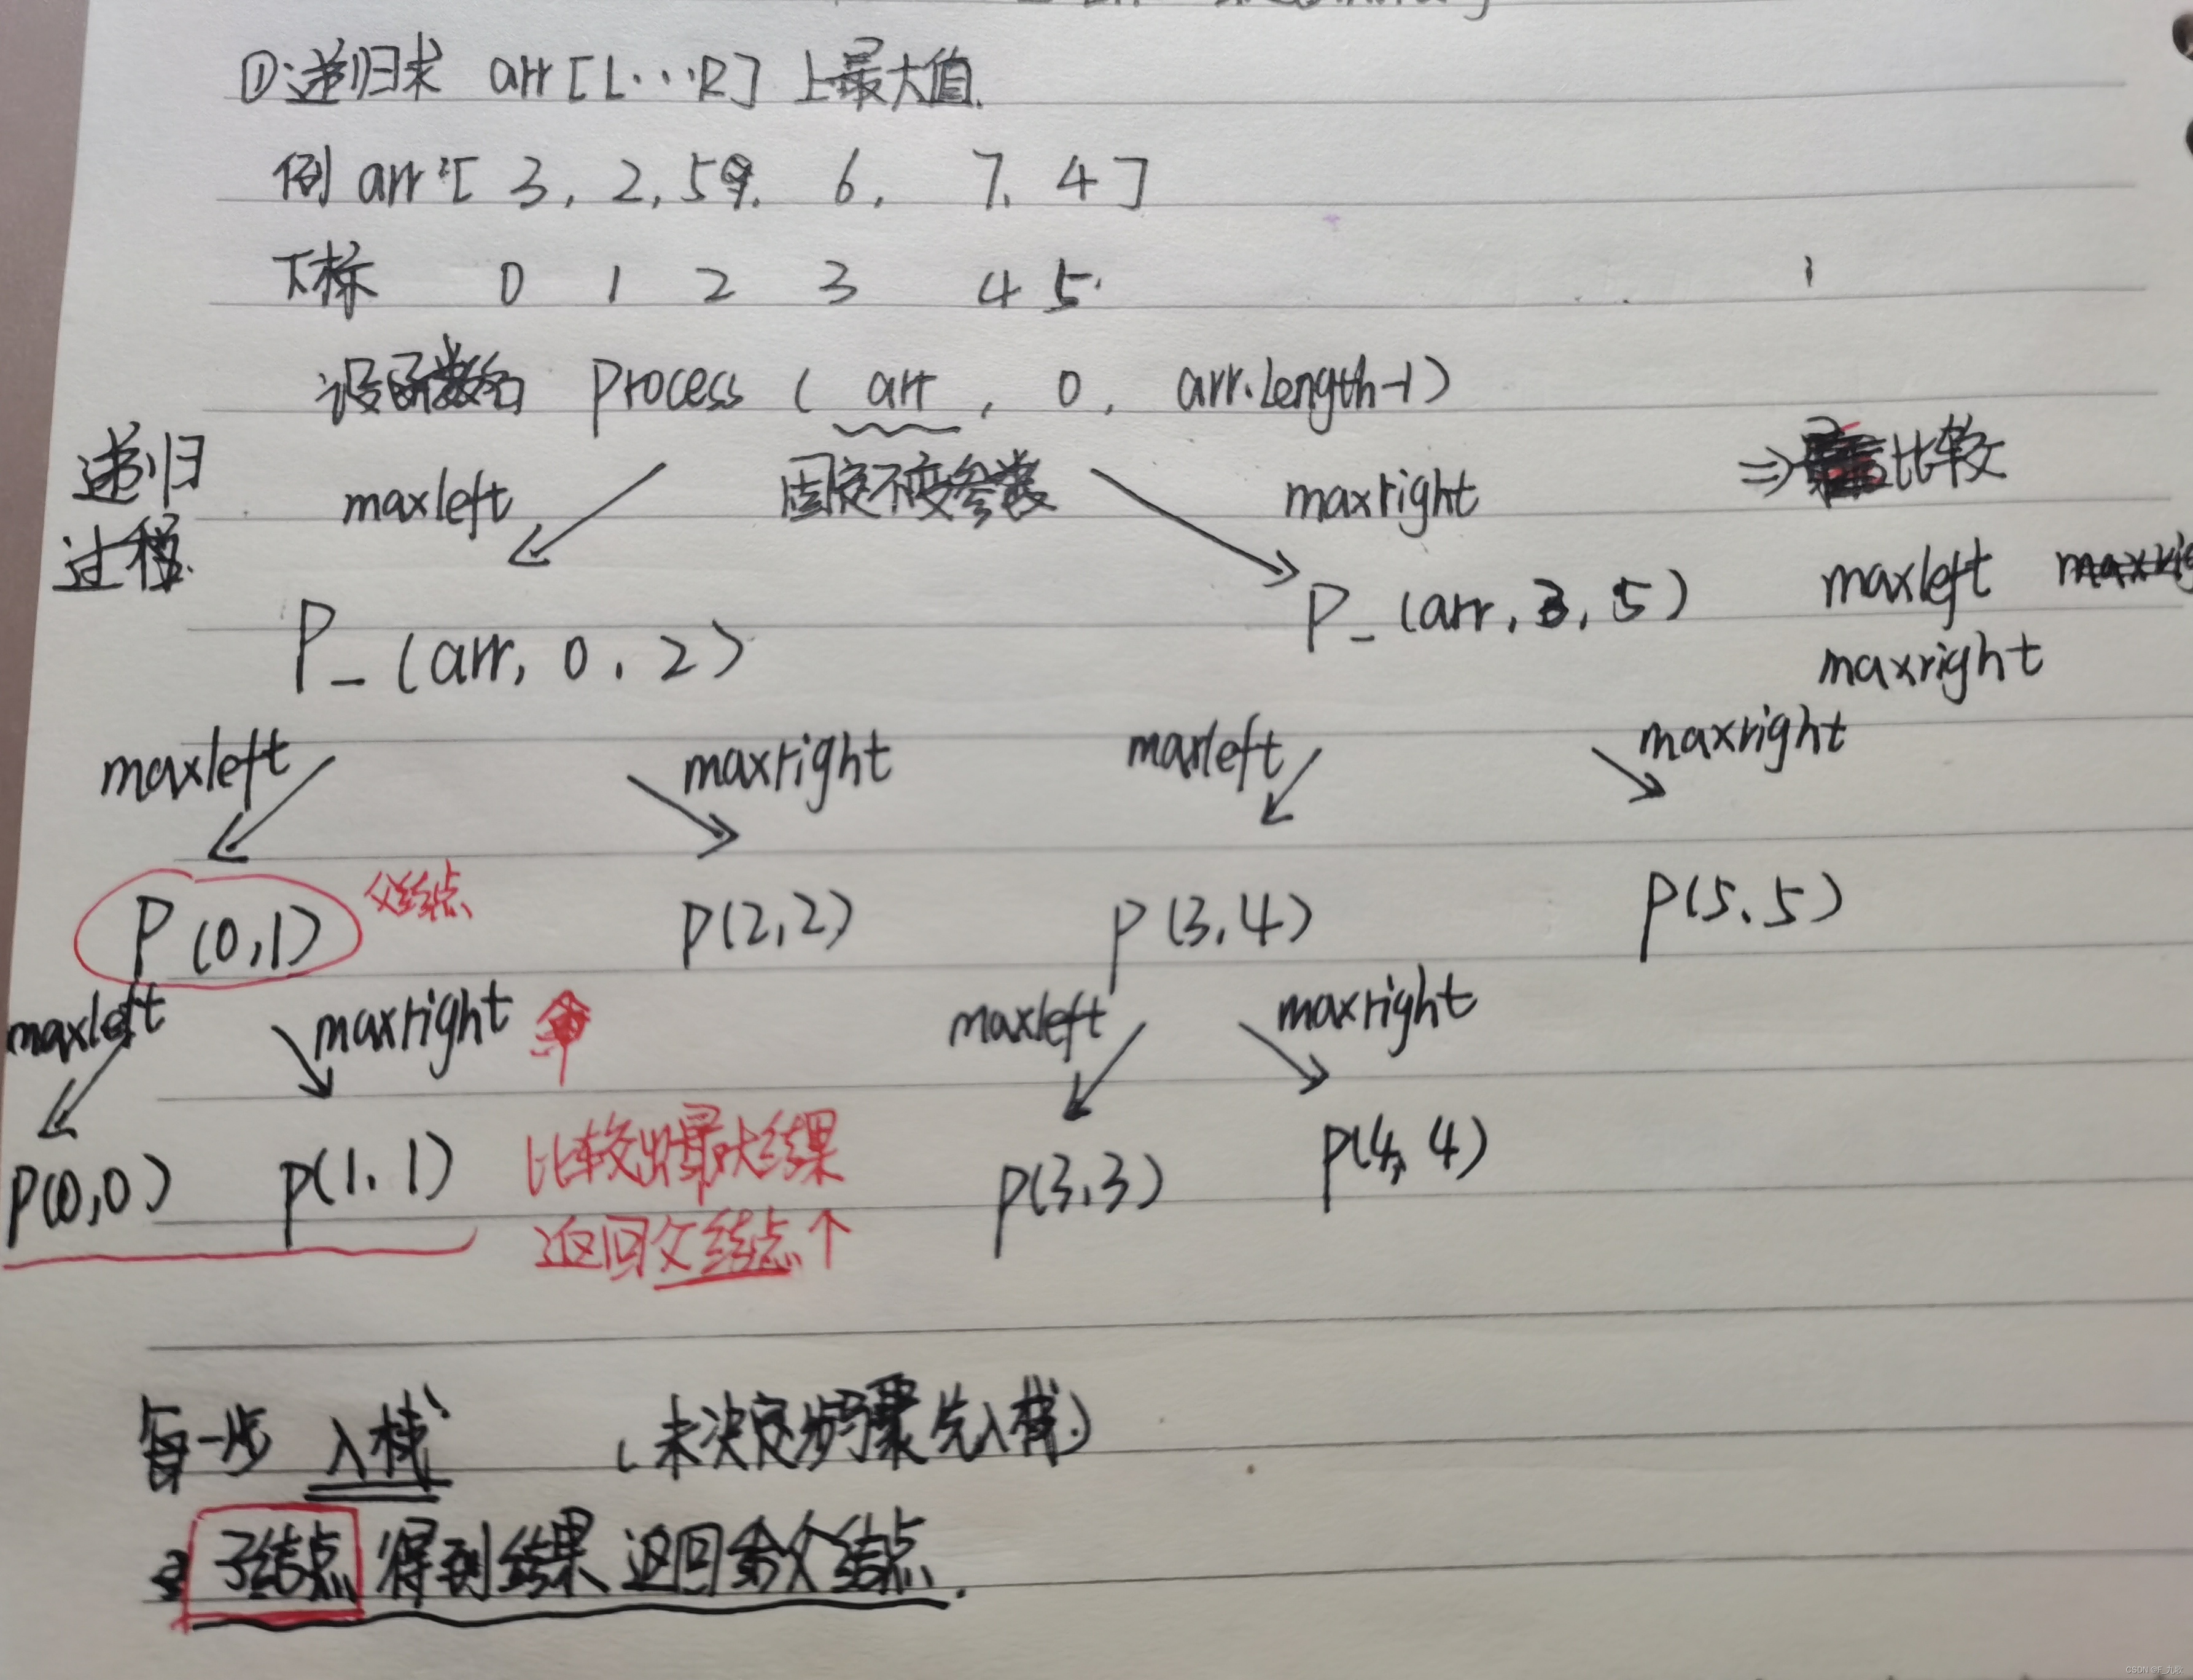 ①递归求 arr[L···R] 上最大值.
例 arr:[3, 2, 5, 6, 7, 4]
下标 0 1 2 3 4 5
设函数名 process ( arr , 0, arr.length-1)
递归过程
固定不变参数
maxleft maxright
⇒ 比较
maxleft
maxright
P_(arr, 0, 2) P_(arr, 3, 5)
maxleft maxright maxleft maxright
P(0,1) 父结点 P(2,2) P(3,4) P(5,5)
maxleft maxright maxleft maxright
P(0,0) P(1,1) P(3,3) P(4,4)
比较出最大结果
返回父结点个
每一步 入栈 (未决定步骤先入栈)
子结点 得到结果 返回给父结点.
CSDN @F_九歌